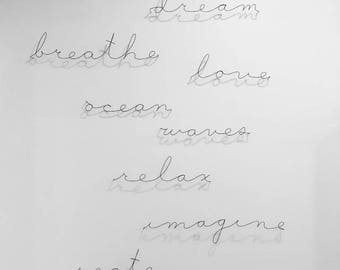 dream
breathe
love
ocean
waves
relax
imagine